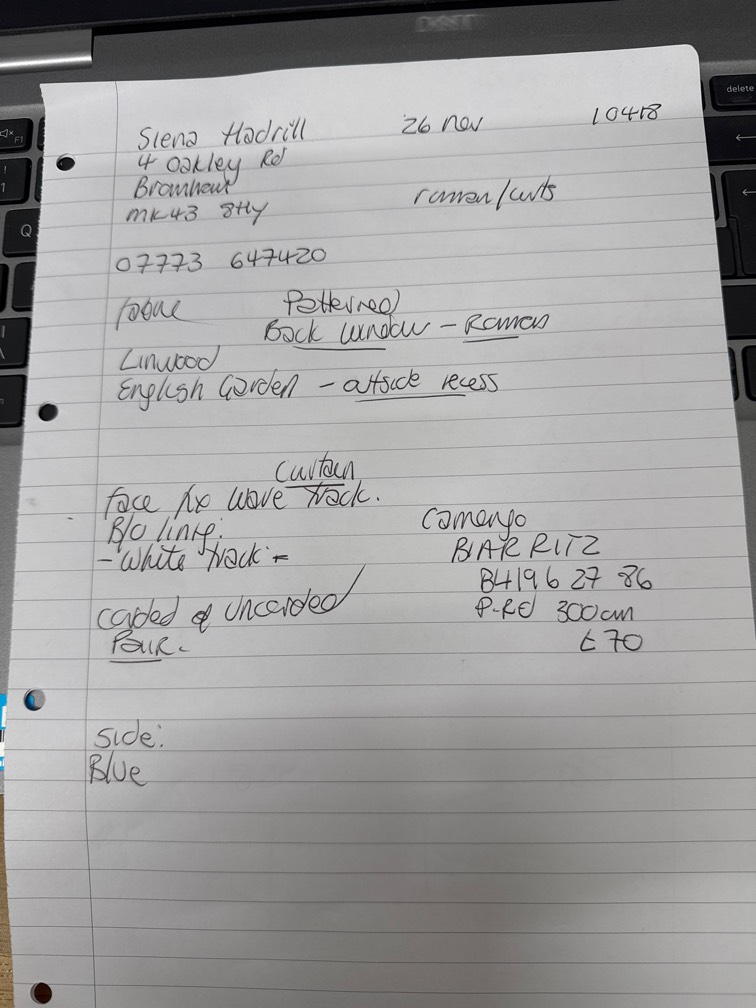 Siena Hadrill 26 nov 10418
4 Oakley Rd
Bromham
MK43 8Hy roman/curts
07773 647420
fabric Patterned
Back window - Roman
Linwood
English Garden - outside recess
Curtain
face fix wave track.
B/O lining: Camengo
- White track - BIARRITZ
B4196 27 86
corded & Uncorded P-Rd 300cm
Pair. £70
Side:
Blue
delete
F1
Q
DELL